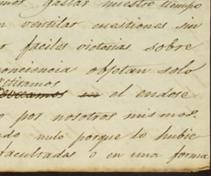 mos gastar nuestro tiempo
n ventilar cuestiones sin
r faciles victorias sobre
onciencia objetan solo
en el endose
o por nosotros mismos.
ndo nulo porque lo hubie
facultradas o en una forma